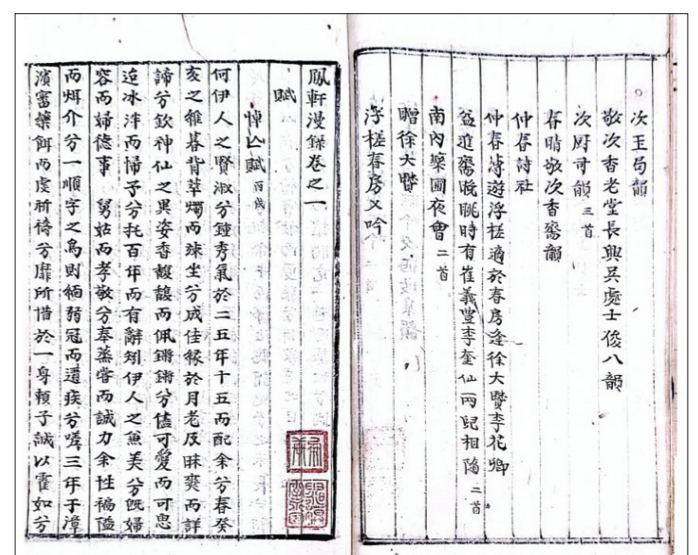 ○次玉局韻
敬次香老堂長與吳處士俊八韻
次厨可韻 三首
春晴敬次香嵒韻
仲春詩社
仲春
遊浮槎適於春房逢徐大賢李花卿
晚眺時有崔義豊李奎仙兩兒相隨 二首
南內藥圃夜會 二首
贈徐大
浮槎春房又吟
鳳軒漫錄卷之一
賦
悼亡賦
何伊人之賢淑兮鍾秀氣於二五年十五而配余兮春癸
亥之穉暮背草燭而竦坐兮成佳緣於月老及昧爽而詳
諦兮欽神仙之異姿香馥馥而佩鏘鏘兮儘可愛而可思
迨冰泮而歸子兮托百年而有辭矧伊人之兼美兮旣婦
容而婦德事舅姑而孝敬兮奉蒸嘗而誠力余性褊隘
而炯介兮一順字之為則緬弱冠而遘疾兮嗟三年于漳
濱審藥餌而虔祈禱兮靡所惜於一身賴子誠以霍如兮